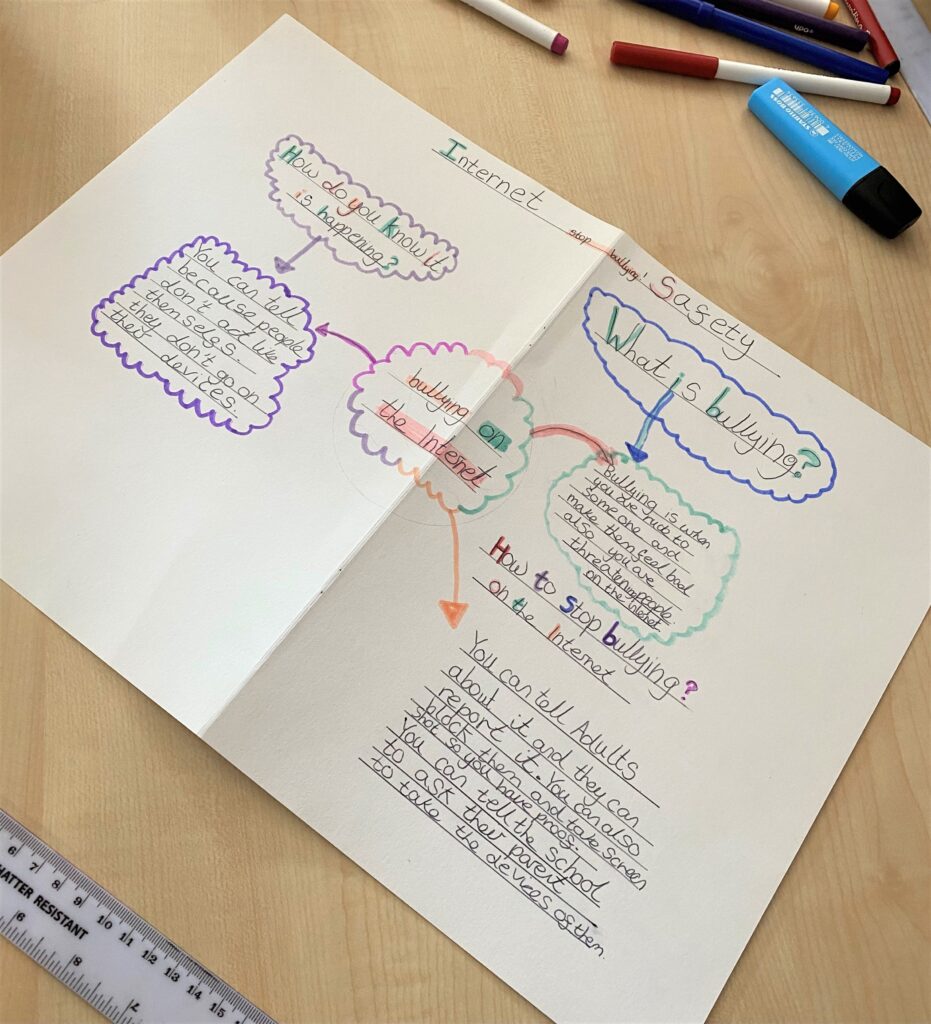 Internet
stop
bullying!
Sagety
How do you know it
is happening?
You can tell
because people
don't act like
themselves.
they don't go on
their devices.
bullying on
the Internet
What is bullying?
Bullying is when
you are rude to
someone and
make them feel bad
also you are
threatening people
on the internet
How to stop bullying?
on the Internet
You can tell Adults
about it and they can
report it. You can also
block them and take screen
shot so you have proof.
You can tell the school
to ask their parent
to take the devices of them.
STABILO BOSS
SHATTER RESISTANT
6 7 8 9 10 11 12 13 14 15
6 8 7